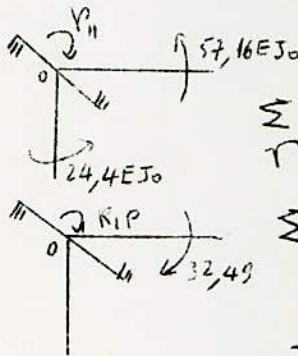 r₁₁
57,16EJ₀
0
Σ
24,4EJ₀
R₁P
Σ
0
32,49